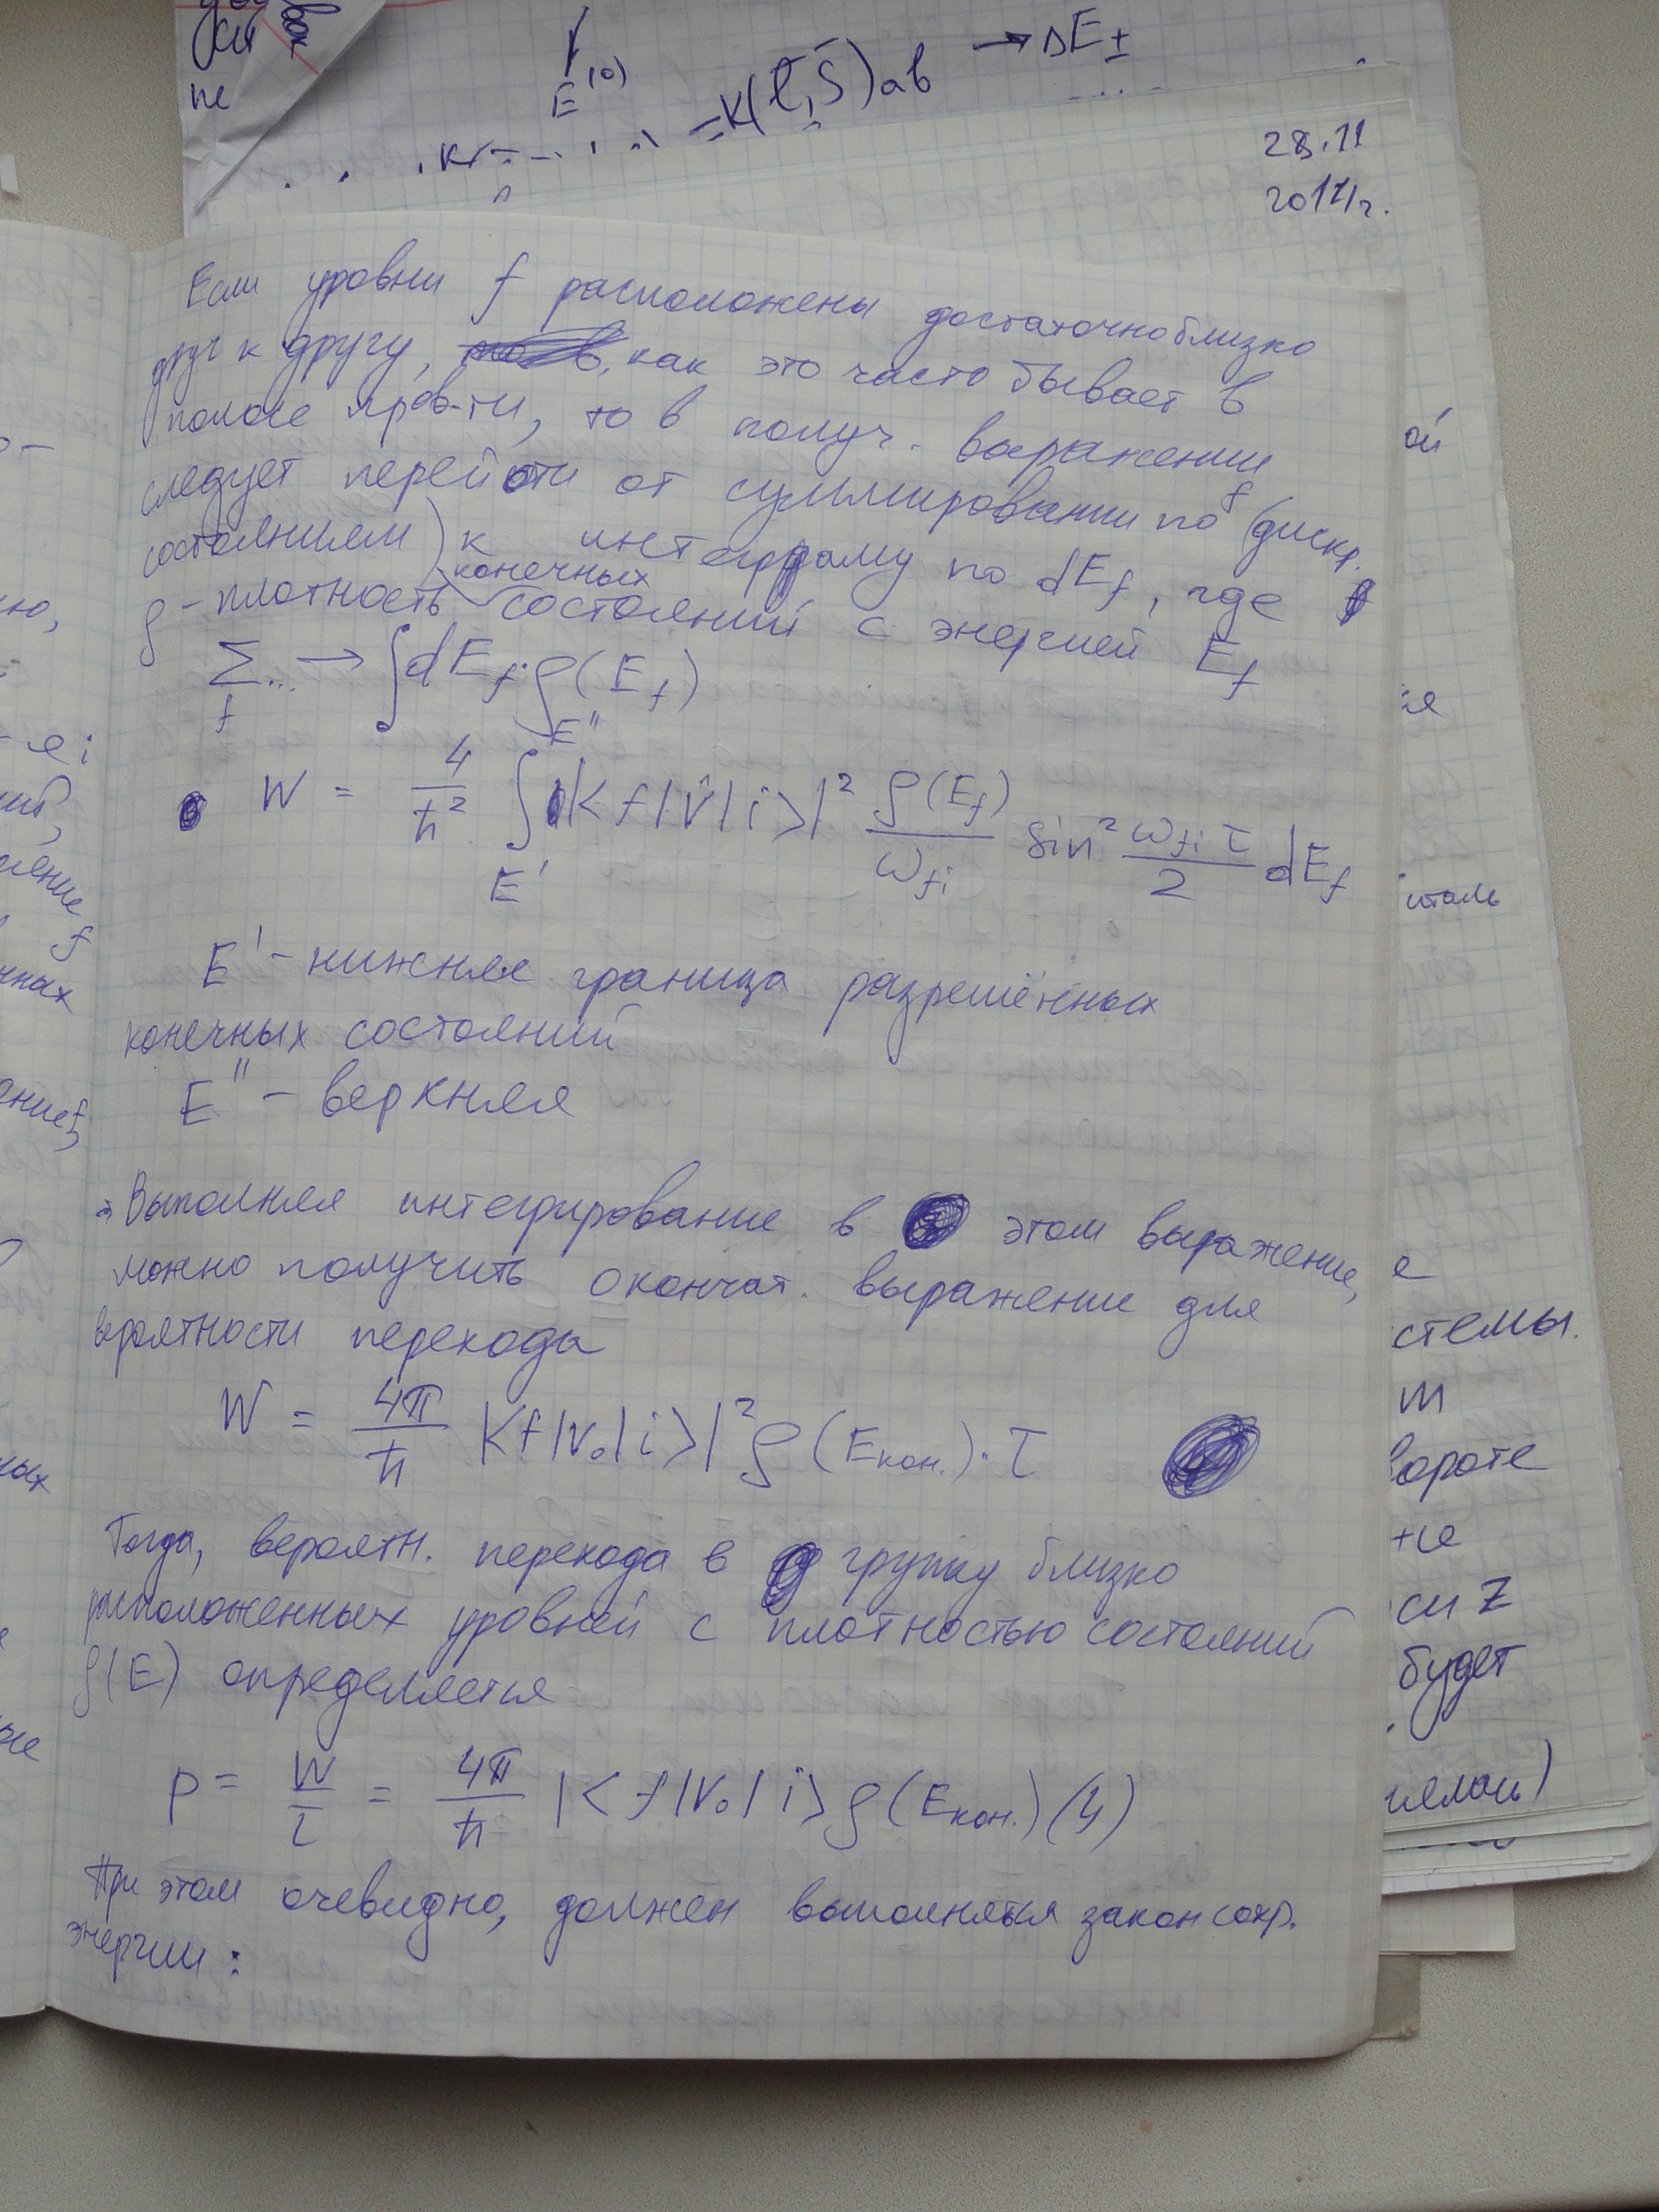 не
E⁽⁰⁾
= K(ℓ, S) ab → ΔE±
28.11
2017г.
Если уровни f расположены достаточно близко
друг к другу, как это часто бывает в
полосе пров-ти, то в получ. выражении
следует перейти от суммировании по f (дискр.
состояниям) к интегралу по dE_f, где
ρ - плотность конечных состояний с энергией E_f
Σ_f ... → ∫dE_f · ρ(E_f)
W = 4/ħ² ∫_{E'}^{E''} |<f|V̂|i>|² ρ(E_f)/ω_fi sin² ω_fi τ/2 dE_f
E' - нижняя граница разрешённых
конечных состояний
E'' - верхняя
Выполняя интегрирование в этом выражение,
можно получить окончат. выражение для
вероятности перехода
W = 4π/ħ |<f|V₀|i>|² ρ(E_кон.) · τ
Тогда, вероятн. перехода в группу близко
расположенных уровней с плотностью состояний
ρ(E) определяется
P = W/τ = 4π/ħ |<f|V₀|i> ρ(E_кон.) (4)
При этом очевидно, должен выполняться закон сохр.
энергии:
ой
е
стемы.
m
вороте
си Z
будет